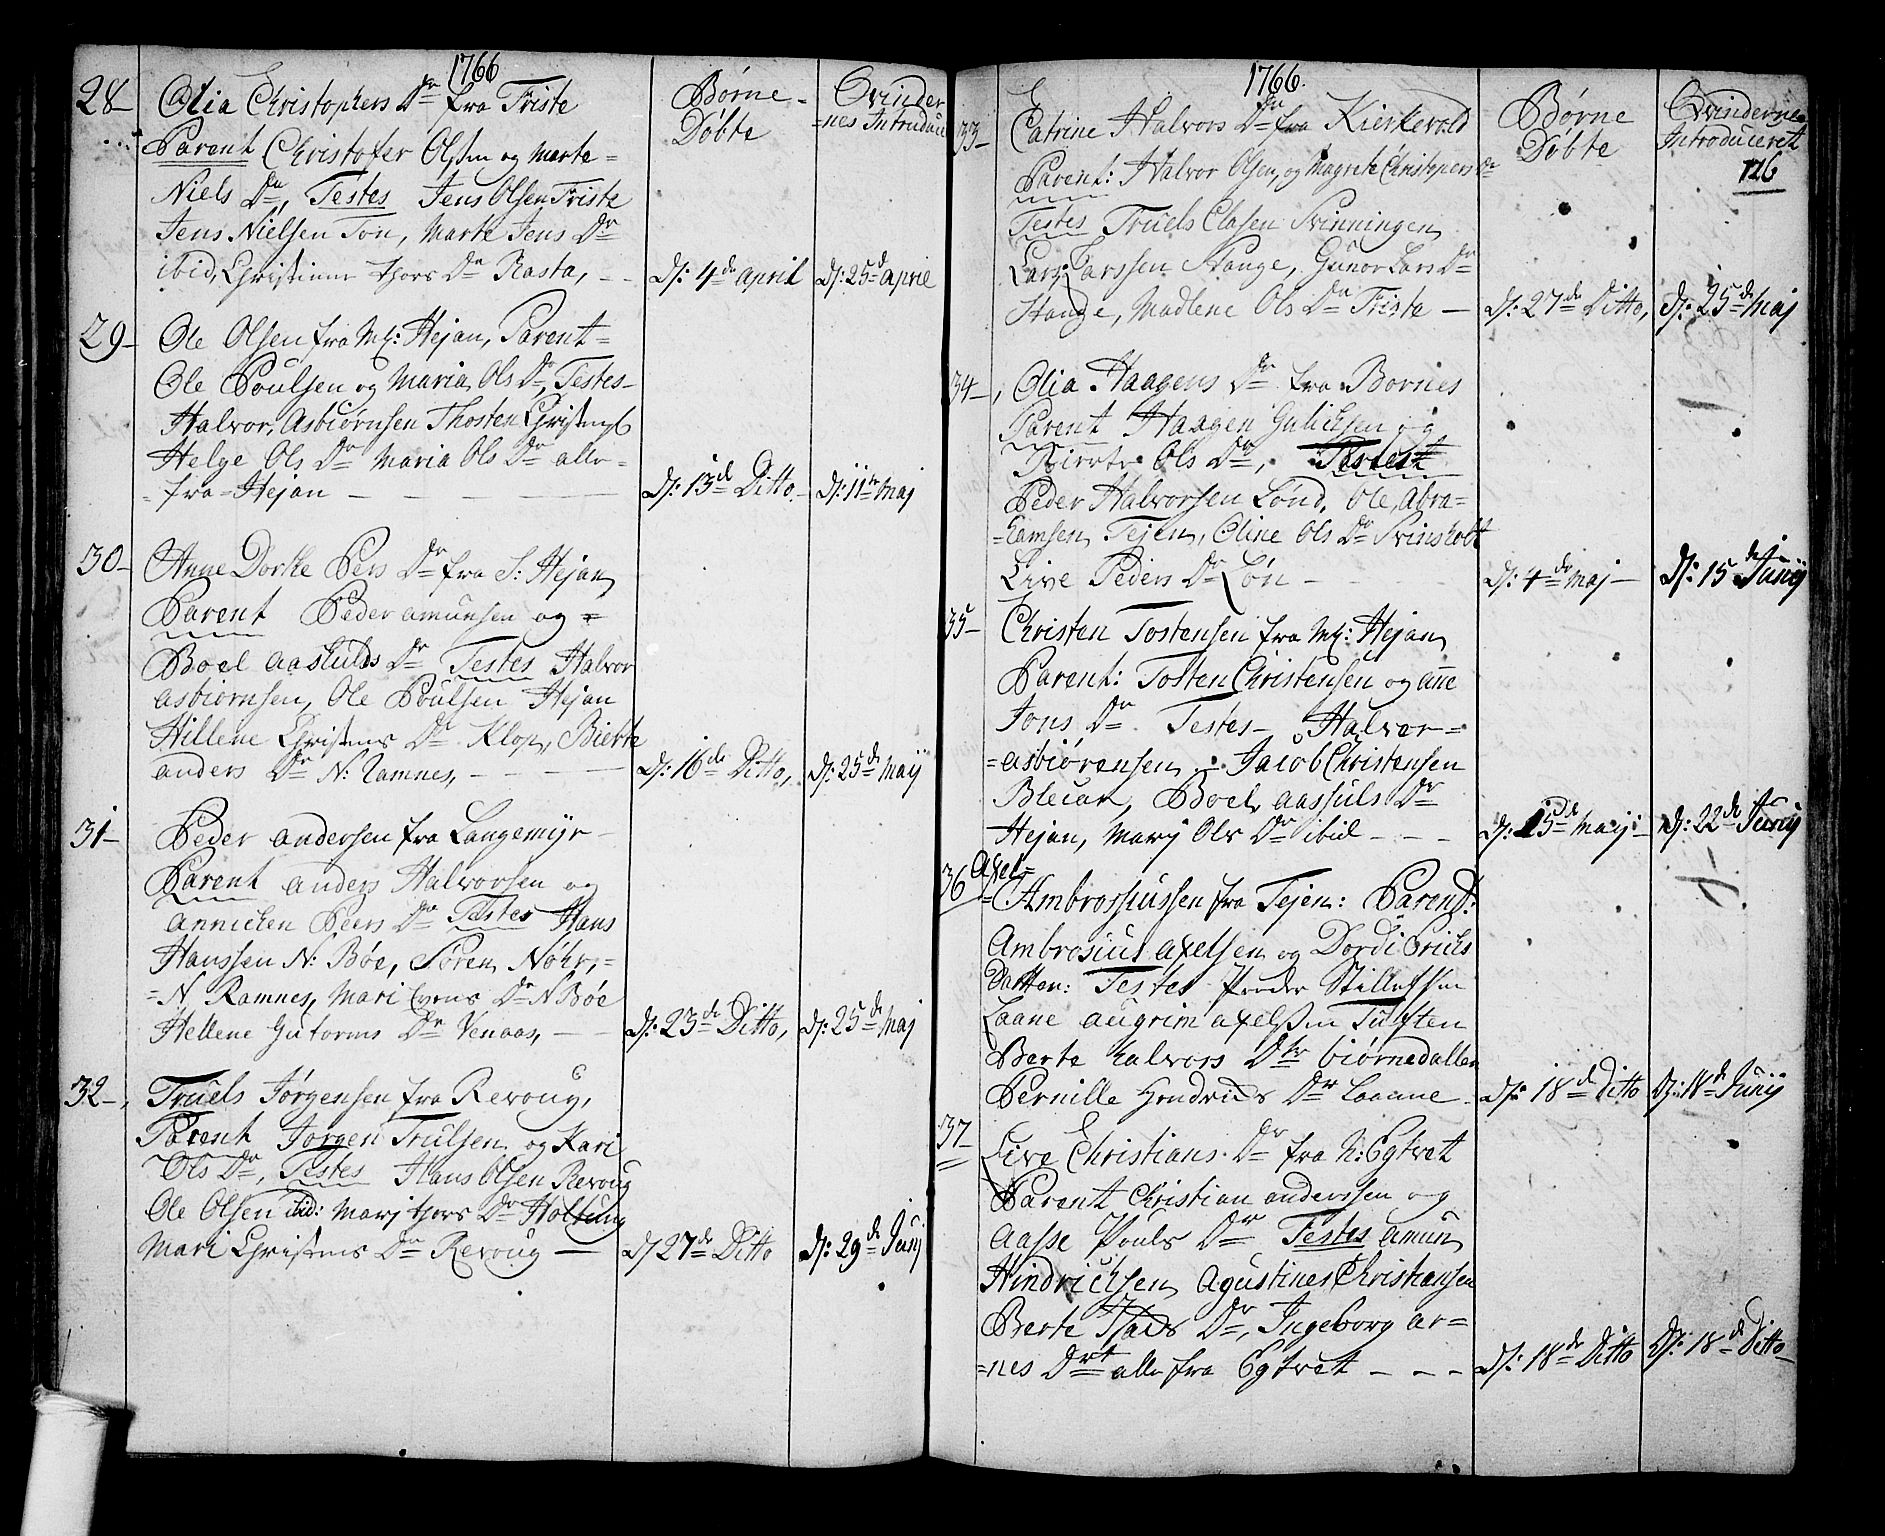 1766
Børne-
Døbte
Qvinder
=nes Introduce
28- Olia Christophers Dr fra Friste
Parent Christofer Olssen og marte=
Niels Dr, Testes Jens Olsen Friste
Jens Nielsen Ton, Marte Jens Dr
ibid, Christine thors Dr Rasta, -- d: 4de april d: 25d april
29- Ole Olsen fra Mx: Hejan, Parent=
Ole Poulsen og Maria Ols Dr, Testes-
Halvor Asbiørnsen Thosten Christens
Helge Ols Dr Maria Ols Dr alle-
=fra=Hejan - - - - d: 13de Ditto d: 11te maj
30- Anne Dorthe Pers Dr fra S: Hejan
Parent Peder amunsen og =
Boel aasulds Dr Testes Halvor
asbiørnsen, Ole Poulsen Hejan
Hillene Christens Dr Klop, Bierte
anders Dr N: Ramnes, - - - d: 16de Ditto, d: 25de maij
31- Peder andersen fra Langemijr-
Parent anders Halvorsen og
annicken Peers Dr Testes Hans
Hanssen N: Bøe, Søren Nøhr,=
=N Ramnes, Mari Evens Dr N Bøe
Hellene Gutorms Dr Venaas, - d: 23de Ditto, d: 25de Maj
32-, Truels Jørgensen fra Revoug,
Parent Jørgen Trulsen og Kari
Ols Dr, Testes Hans Olsen Revoug
Ole Olsen ibid: Marj thors Dr Holtung
Mari Christens Dr Revoug - d 27de Ditto d: 29de Junj
1766.
Børne
Døbte
Qvinderne
Introduceret
126
33- Catrine Halvors Dr fra Kierkevold
Parent: Halvor Olsen, og Magrete Christophers Dr
Testes Truels Clasen Svinningen
Lars Larssen Stange, Gunor Lars Dr
Stange, Madlene Ols Dr Friste - d: 27de Ditto, d: 25de Maj
34-, Olia Haagens Dr fra Bornes
Parent Haagen Gulichsen og
Ols Dr, Testest
Peder Halvorsen Lønd, Ole Abra=
=hamsen Tejen, Oline Ols Dr Svinsholt
Live Peders Dr Løn - d: 4de maj- d: 15de Junij
35- Christen Tostensen fra Mx: Hejan
Parent: Tosten Christensen og añe
Jons Dr Testes- Halvor-
=asbiørensen, Jacob Christensen
Blecar, Boel aassuls Dr
Hejan, Marj Ols Dr ibid - - - d: 15de Maij- d: 22de Junij
36 Axel-
=Ambrossiussen fra Tejen: Parent:
Ambrosius axelsen og Dordi Erichs
Datter: Testes Peder Stillefsen
Laane augrim axelsen Tulften
Berte halvors Dtr biørnedallen
Pernille Hendrichs Dr Laane - d: 18de Ditto d: 18de Junij
37 Live Christians Dr fra N: Egtvet
Parent Christian anderssen og
Aasse Pouls Dr Testes amun
Hindrichsen Agustines Christiansen
Berte Dr, Ingeborg ar=
=nes Drt alle fra Egtvet - - - d: 18de Ditto d: 18de Ditto-